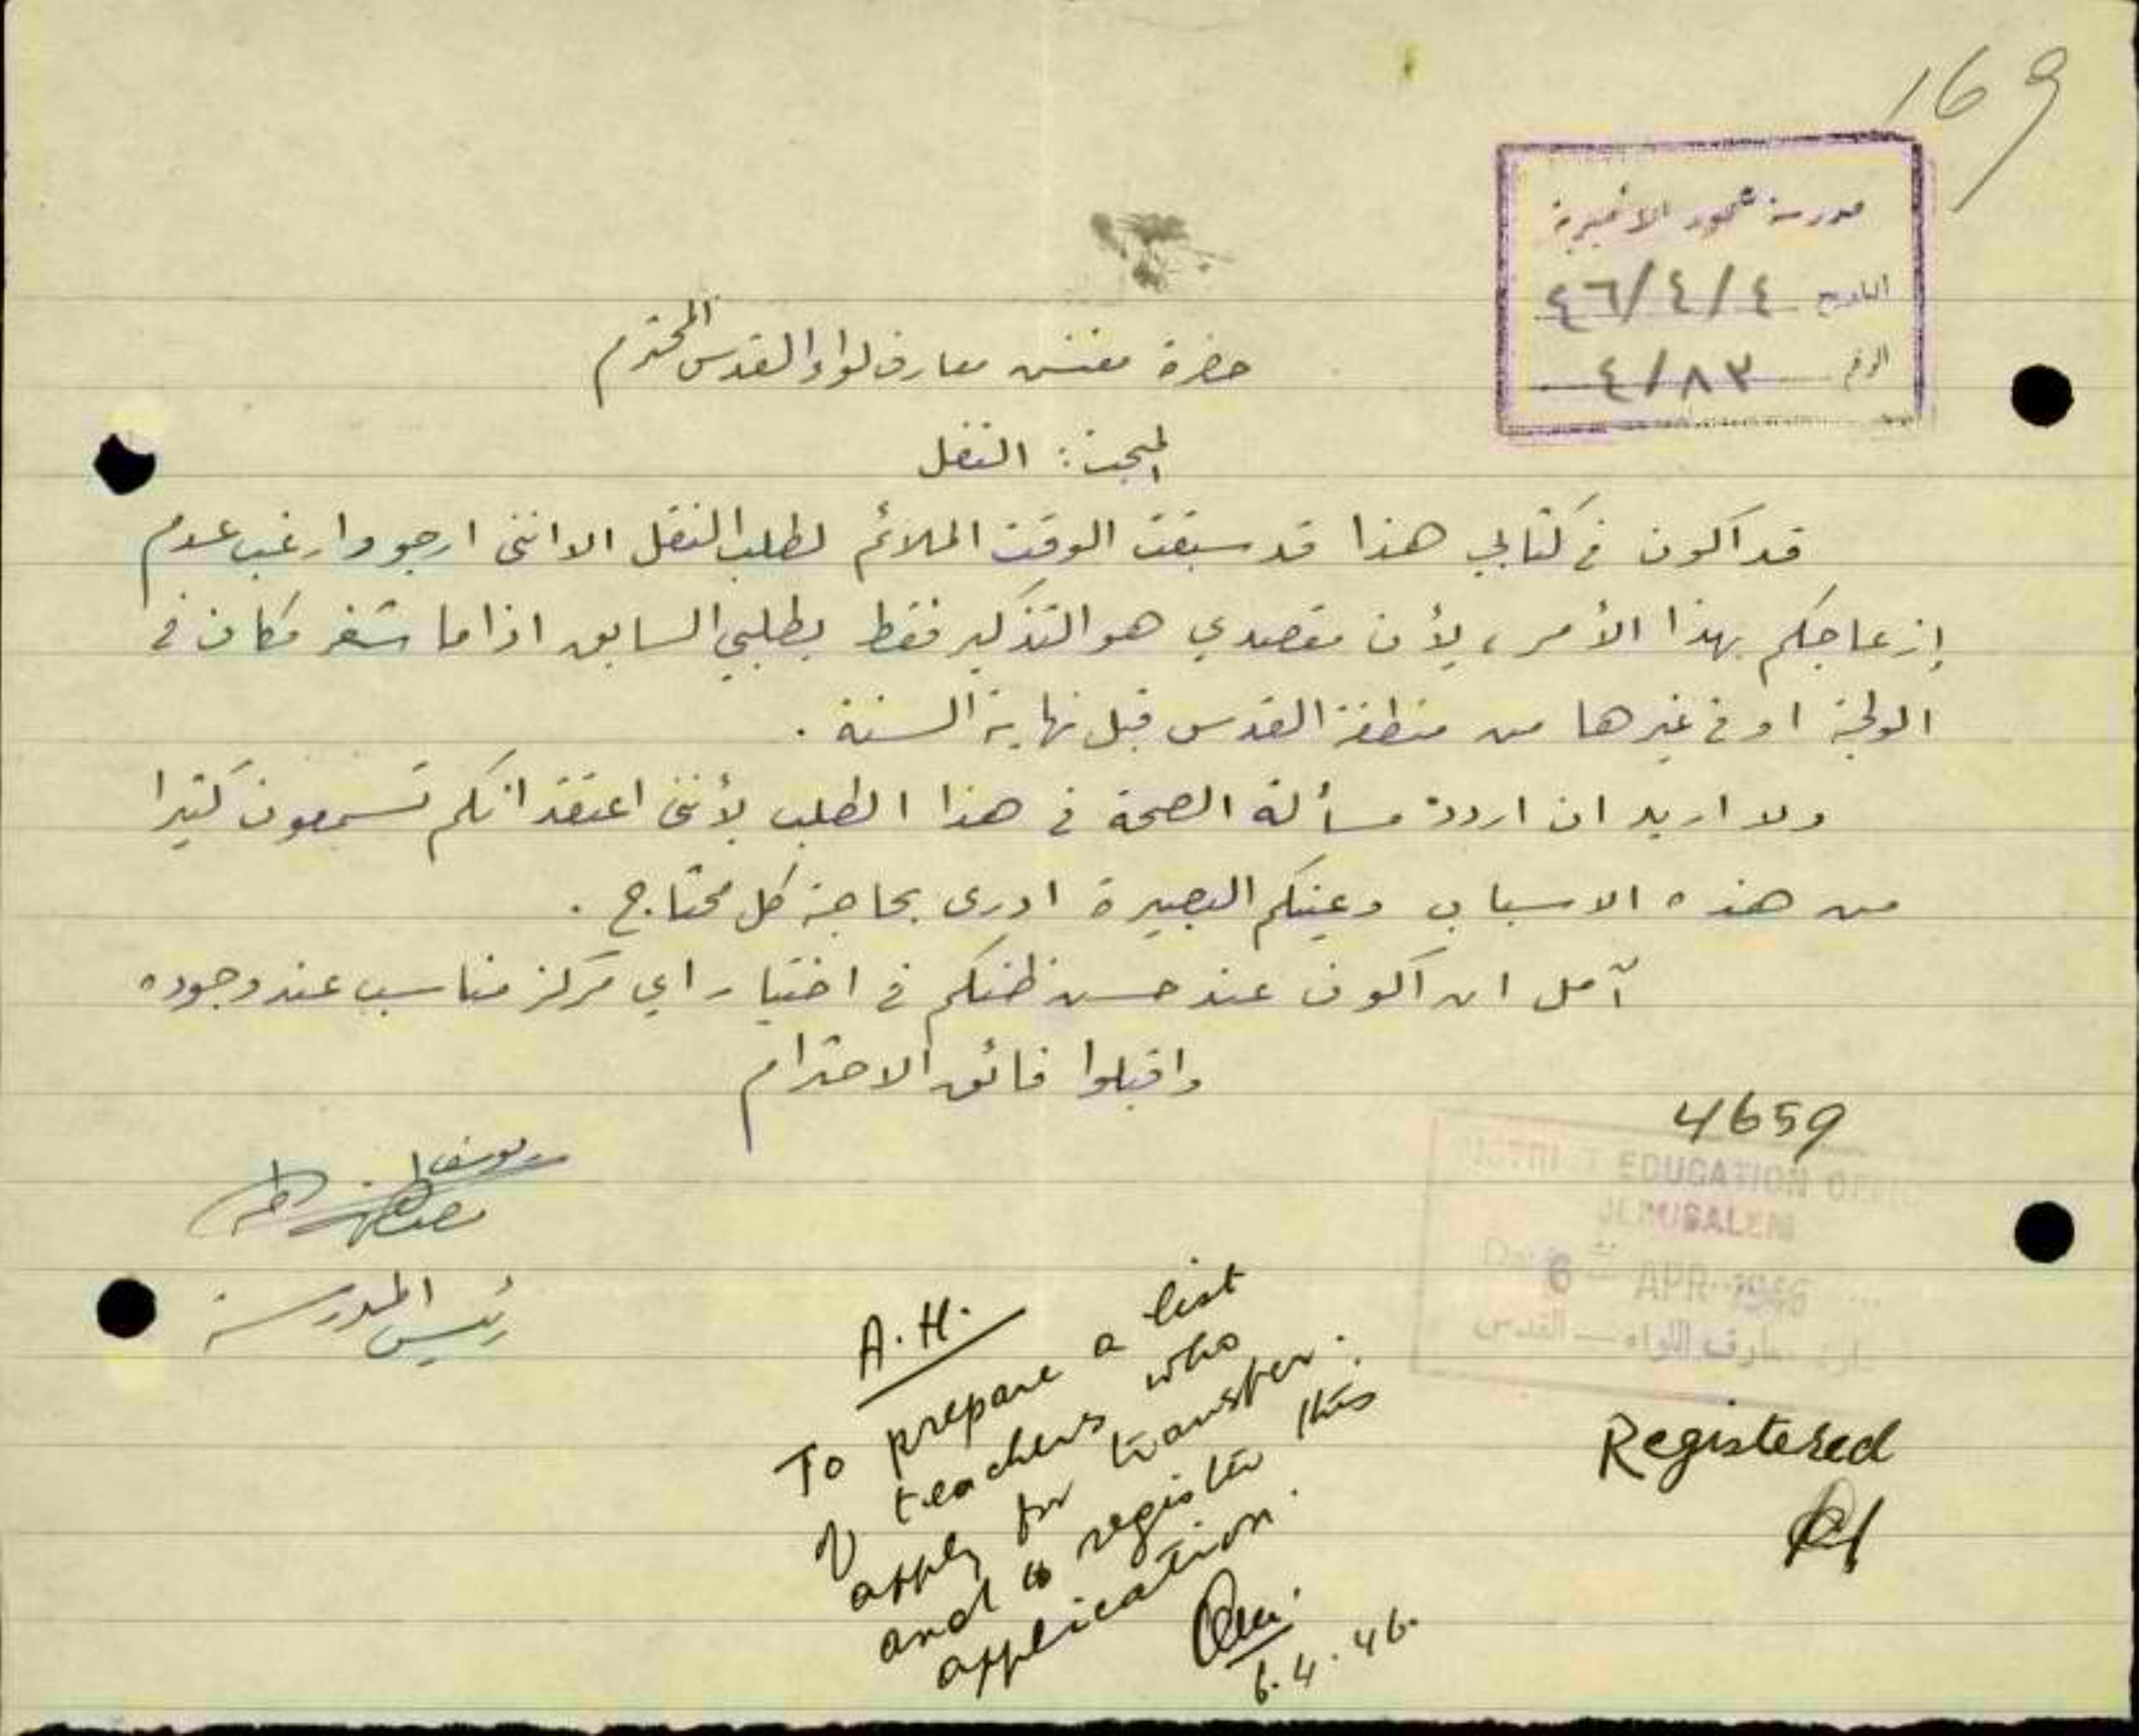 169
مدرسة عجور الاميرية
التاريخ ٤٦/٤/٤
الرقم ٤/٨٣
حضرة مفتش معارف لواء القدس المحترم
المبحث: النقل
قد اكون في كتابي هذا قد سبقت الوقت الملائم لطلب النقل الا انني ارجو وارغب عدم
إزعاجكم بهذا الأمر، لأن مقصدي هو التذكير فقط بطلبي السابق اذا ما شغر مكان في
الولجة او في غيرها من منطقة القدس قبل نهاية السنة .
ولا اريد ان اردد مسألة الصحة في هذا الطلب لأنني اعتقد انكم تسمعون كثيرا
من هذه الاسباب وعينكم البصيرة ادرى بحاجة كل محتاج .
آمل ان اكون عند حسن ظنكم في اختيار اي مركز مناسب عند وجوده
واقبلوا فائق الاحترام
رئيس المدرسة
4659
DISTRICT EDUCATION OFFICE
JERUSALEM
Date 6 - APR 1946
ادارة معارف اللواء — القدس
Registered
A.H.
To prepare a list
of teachers who
apply for transfer.
and to register this
application.
6.4.46.